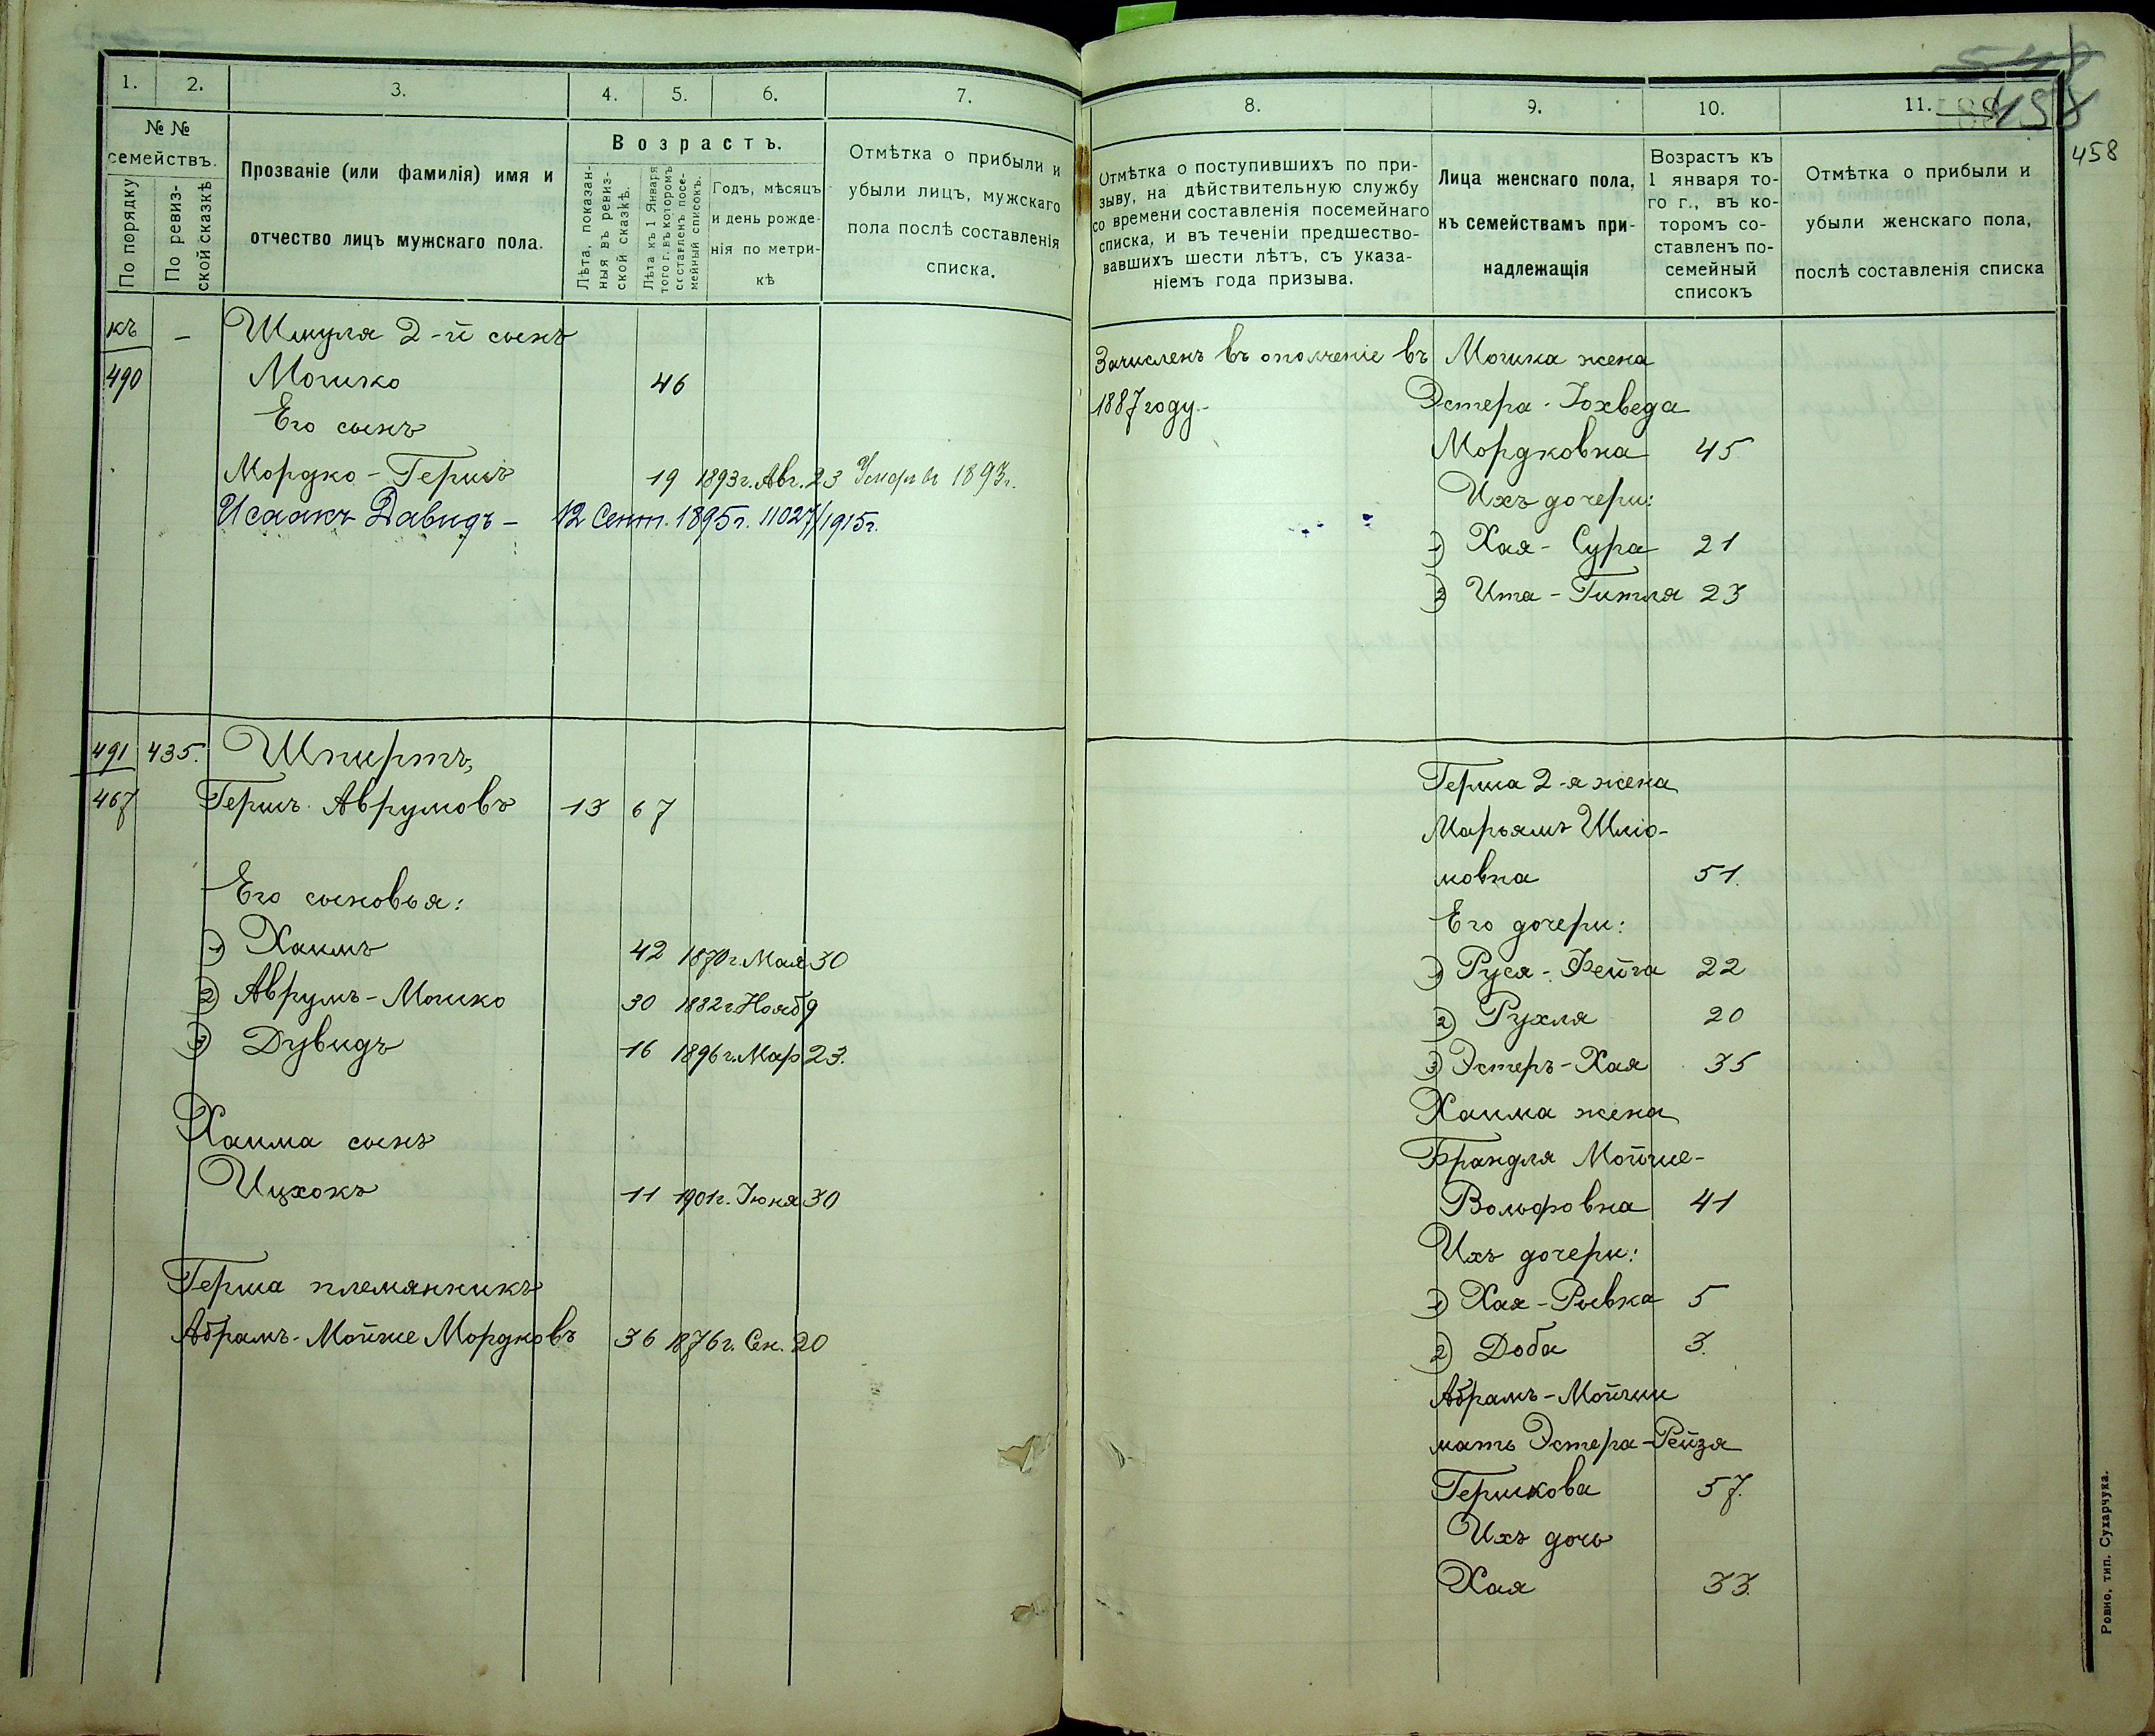 548
458
458
1.
2.
3.
4.
5.
6.
7.
№ №
семействъ.
По порядку
По ревиз-
ской сказкѣ
Прозваніе (или фамилія) имя и
отчество лицъ мужскаго пола.
Возрастъ.
Лѣта, показан-
ныя въ ревиз-
ской сказкѣ.
Лѣта къ 1 Января
того г. въ которомъ
составленъ посе-
мейный списокъ.
Годъ, мѣсяцъ
и день рожде-
нія по метри-
кѣ
Отмѣтка о прибыли и
убыли лицъ, мужскаго
пола послѣ составленія
списка.
къ
490
—
Шмуля 2-й сынъ
Мошко 46
Его сынъ
Мордко-Гершъ 19 1893г. Авг. 23 Умеръ въ 1893г.
Исаакъ Давидъ - 12 Сент. 1895г. 11027/1915г.
491 435. Шпиртъ,
467 Гершъ Аврумовъ 13 67
Его сыновья:
1) Хаимъ 42 1870г. Мая 30
2) Аврумъ-Мошко 30 1882г. Нояб 9
3) Дувидъ 16 1896г. Мар 23.
Хаима сынъ
Ицхокъ 11 1901г. Іюня 30
Герша племянникъ
Абрамъ-Мойше Мордковъ 36 1876г. Сен. 20
8.
9.
10.
11.
Отмѣтка о поступившихъ по при-
зыву, на дѣйствительную службу
со времени составленія посемейнаго
списка, и въ теченіи предшество-
вавшихъ шести лѣтъ, съ указа-
ніемъ года призыва.
Лица женскаго пола,
къ семействамъ при-
надлежащія
Возрастъ къ
1 января то-
го г., въ ко-
торомъ со-
ставленъ по-
семейный
списокъ
Отмѣтка о прибыли и
убыли женскаго пола,
послѣ составленія списка
Зачисленъ въ ополченіе въ
1887 году.-
Мошка жена
Эстера-Іохведа
Мордковна 45
Ихъ дочери:
1) Хая-Сура 21
2) Ита-Гитля 23
Герша 2-я жена
Марьямъ Шліо-
мовна 51.
Его дочери:
1) Руся-Фейга 22
2) Рухля 20
3) Эстеръ-Хая 35
Хаима жена
Брандля Мойше-
Вольфовна 41
Ихъ дочери:
1) Хая-Рывка 5
2) Доба 3.
Абрамъ-Мойши
мать Эстера-Рейзя
Гершкова 57.
Ихъ дочь
Хая 33.
Ровно, тип. Сухарчука.